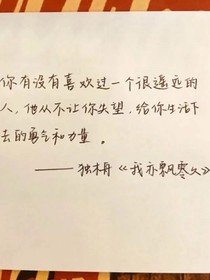 你有没有喜欢过一个很遥远的
人，他从不让你失望，给你生活下
去的勇气和力量。
——独木舟《我亦飘零久》